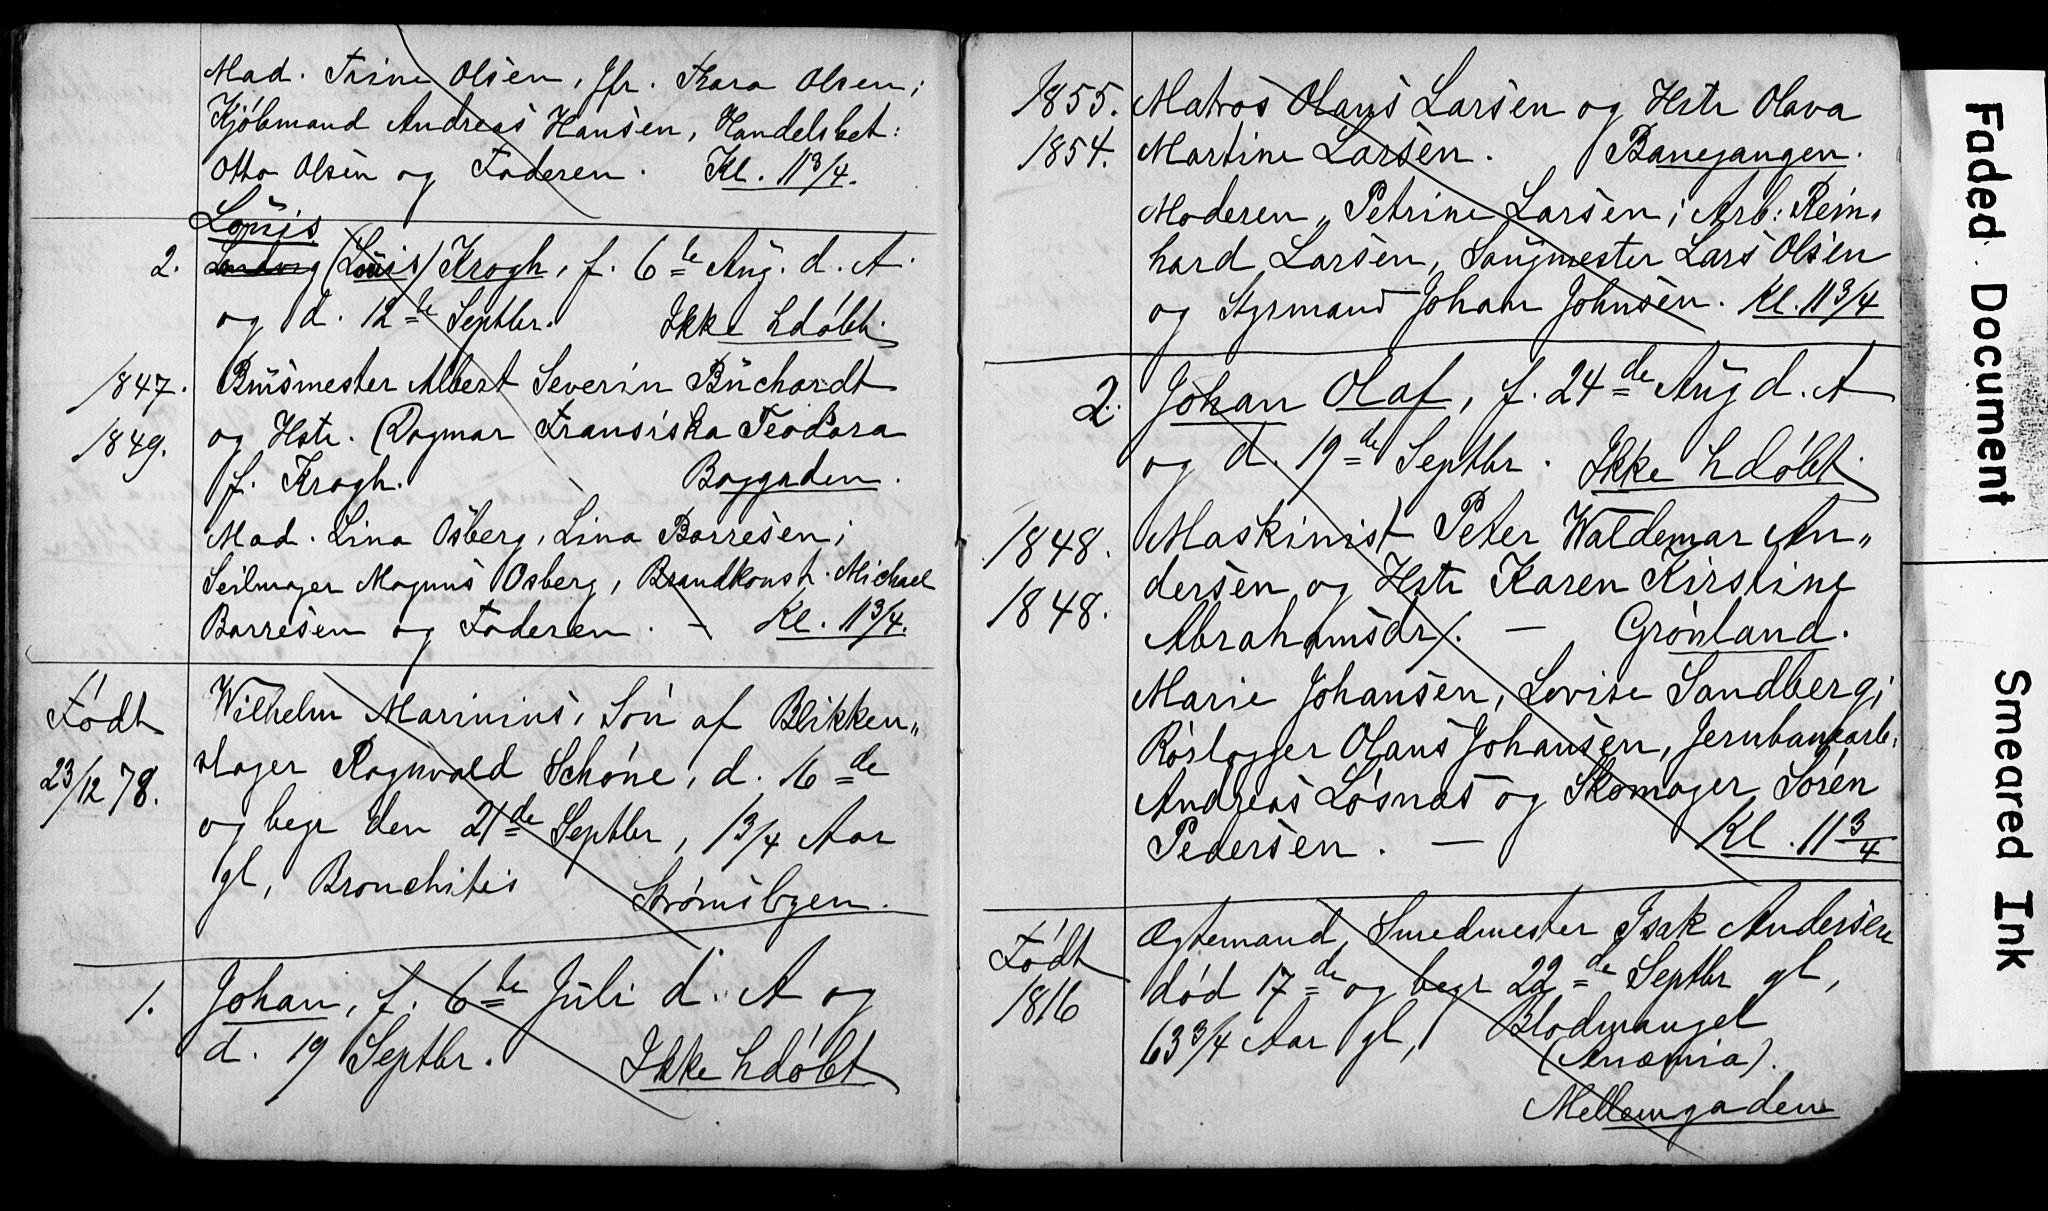 Mad. Trine Olsen, Jfr. Thara Olsen;
Kjöbmand Andreas Hansen, Handelsbet:
Otto Olsen og Faderen. Kl. 11 3/4.
Louis
2. Ludvig (Louis) Krogh, f. 6te Aug. d. A.
og d. 12te Septbr. Ikke hdøbt.
1847. Buusmester Albert Severin Buchardt
1849. og Hstr. Dagmar Fransiska Teodora
f. Krogh. Baggaden.
Mad. Lina Osberg, Lina Barresen;
Seilmager Magnus Osberg, Brandkonst. Michael
Barresen og Faderen. — Kl. 11 3/4.
Født
23/12 78.
Wilhelm Marinius, Søn af Blikken„
slager Ragnvald Schöne, d. 16de
og begr den 21de Septbr, 1 3/4 Aar
gl, Bronchitis Strømsbyen.
1. Johan, f. 6te Juli d. A og
d. 19 Septbr. Ikke hdøbt
1855. Matros Olaus Larsen og Hstr Olava
1854. Martine Larsen. Banegangen.
Moderen, Petrine Larsen; Arb: Rein„
hard Larsen, Saugmester Lars Olsen
og Styrmand Johan Johnsen. Kl. 11 3/4
2. Johan Olaf, f. 24de Aug d. A
og d. 19de Septbr. Ikke hdøbt.
1848. Maskinist Peter Waldemar An„
1848. dersen og Hstr Karen Kirstine
Abrahamsdr. — Grønland.
Marie Johansen, Lovise Sandberg;
Rörlægger Olaus Johansen, Jernbanearb.
Andreas Løsnæs og Skomager Søren
Pedersen. — Kl. 11 3/4
Født
1816
Ægtemand, Smedmester Isak Andersen
død 17de og begr 22de Septbr gl,
63 3/4 Aar gl, Blodmangel
(Anæmia).
Mellemgaden
Faded Document
Smeared Ink